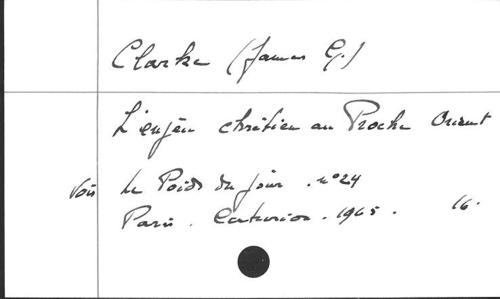 Clarke (James G.)
L'enjeu chrétien au Proche Orient
Voir Le Poids du jour. n°24
Paris. Centurion. 1965. 16.